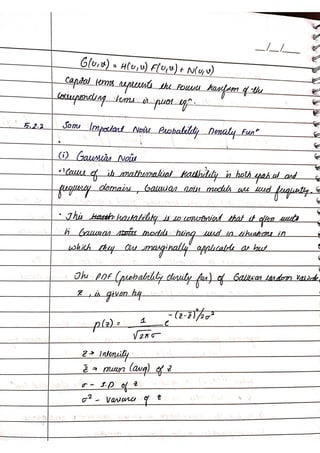 _/_/_
G(u,v) = H(u,v) F(u,v) + N(u,v)
Capital terms represents the Fourier transform of the
corresponding terms in prior eqn.
5.2.2 Some Important Noise Probability Density Fun^n
(i) Gaussian Noise
• cause of its mathematical tractability in both spatial and
frequency domains, Gaussian noise models are used frequently.
• This tractability is so convenient that it often results
in Gaussian models being used in situations in
which they are marginally applicable at best
The PDF (probability density fun) of Gaussian random variable,
z, is given by
p(z) = 1/√2πσ e^-(z-z̄)²/2σ²
z → Intensity
z̄ → mean (avg) of z
σ - S.D of z
σ² - Variance of z